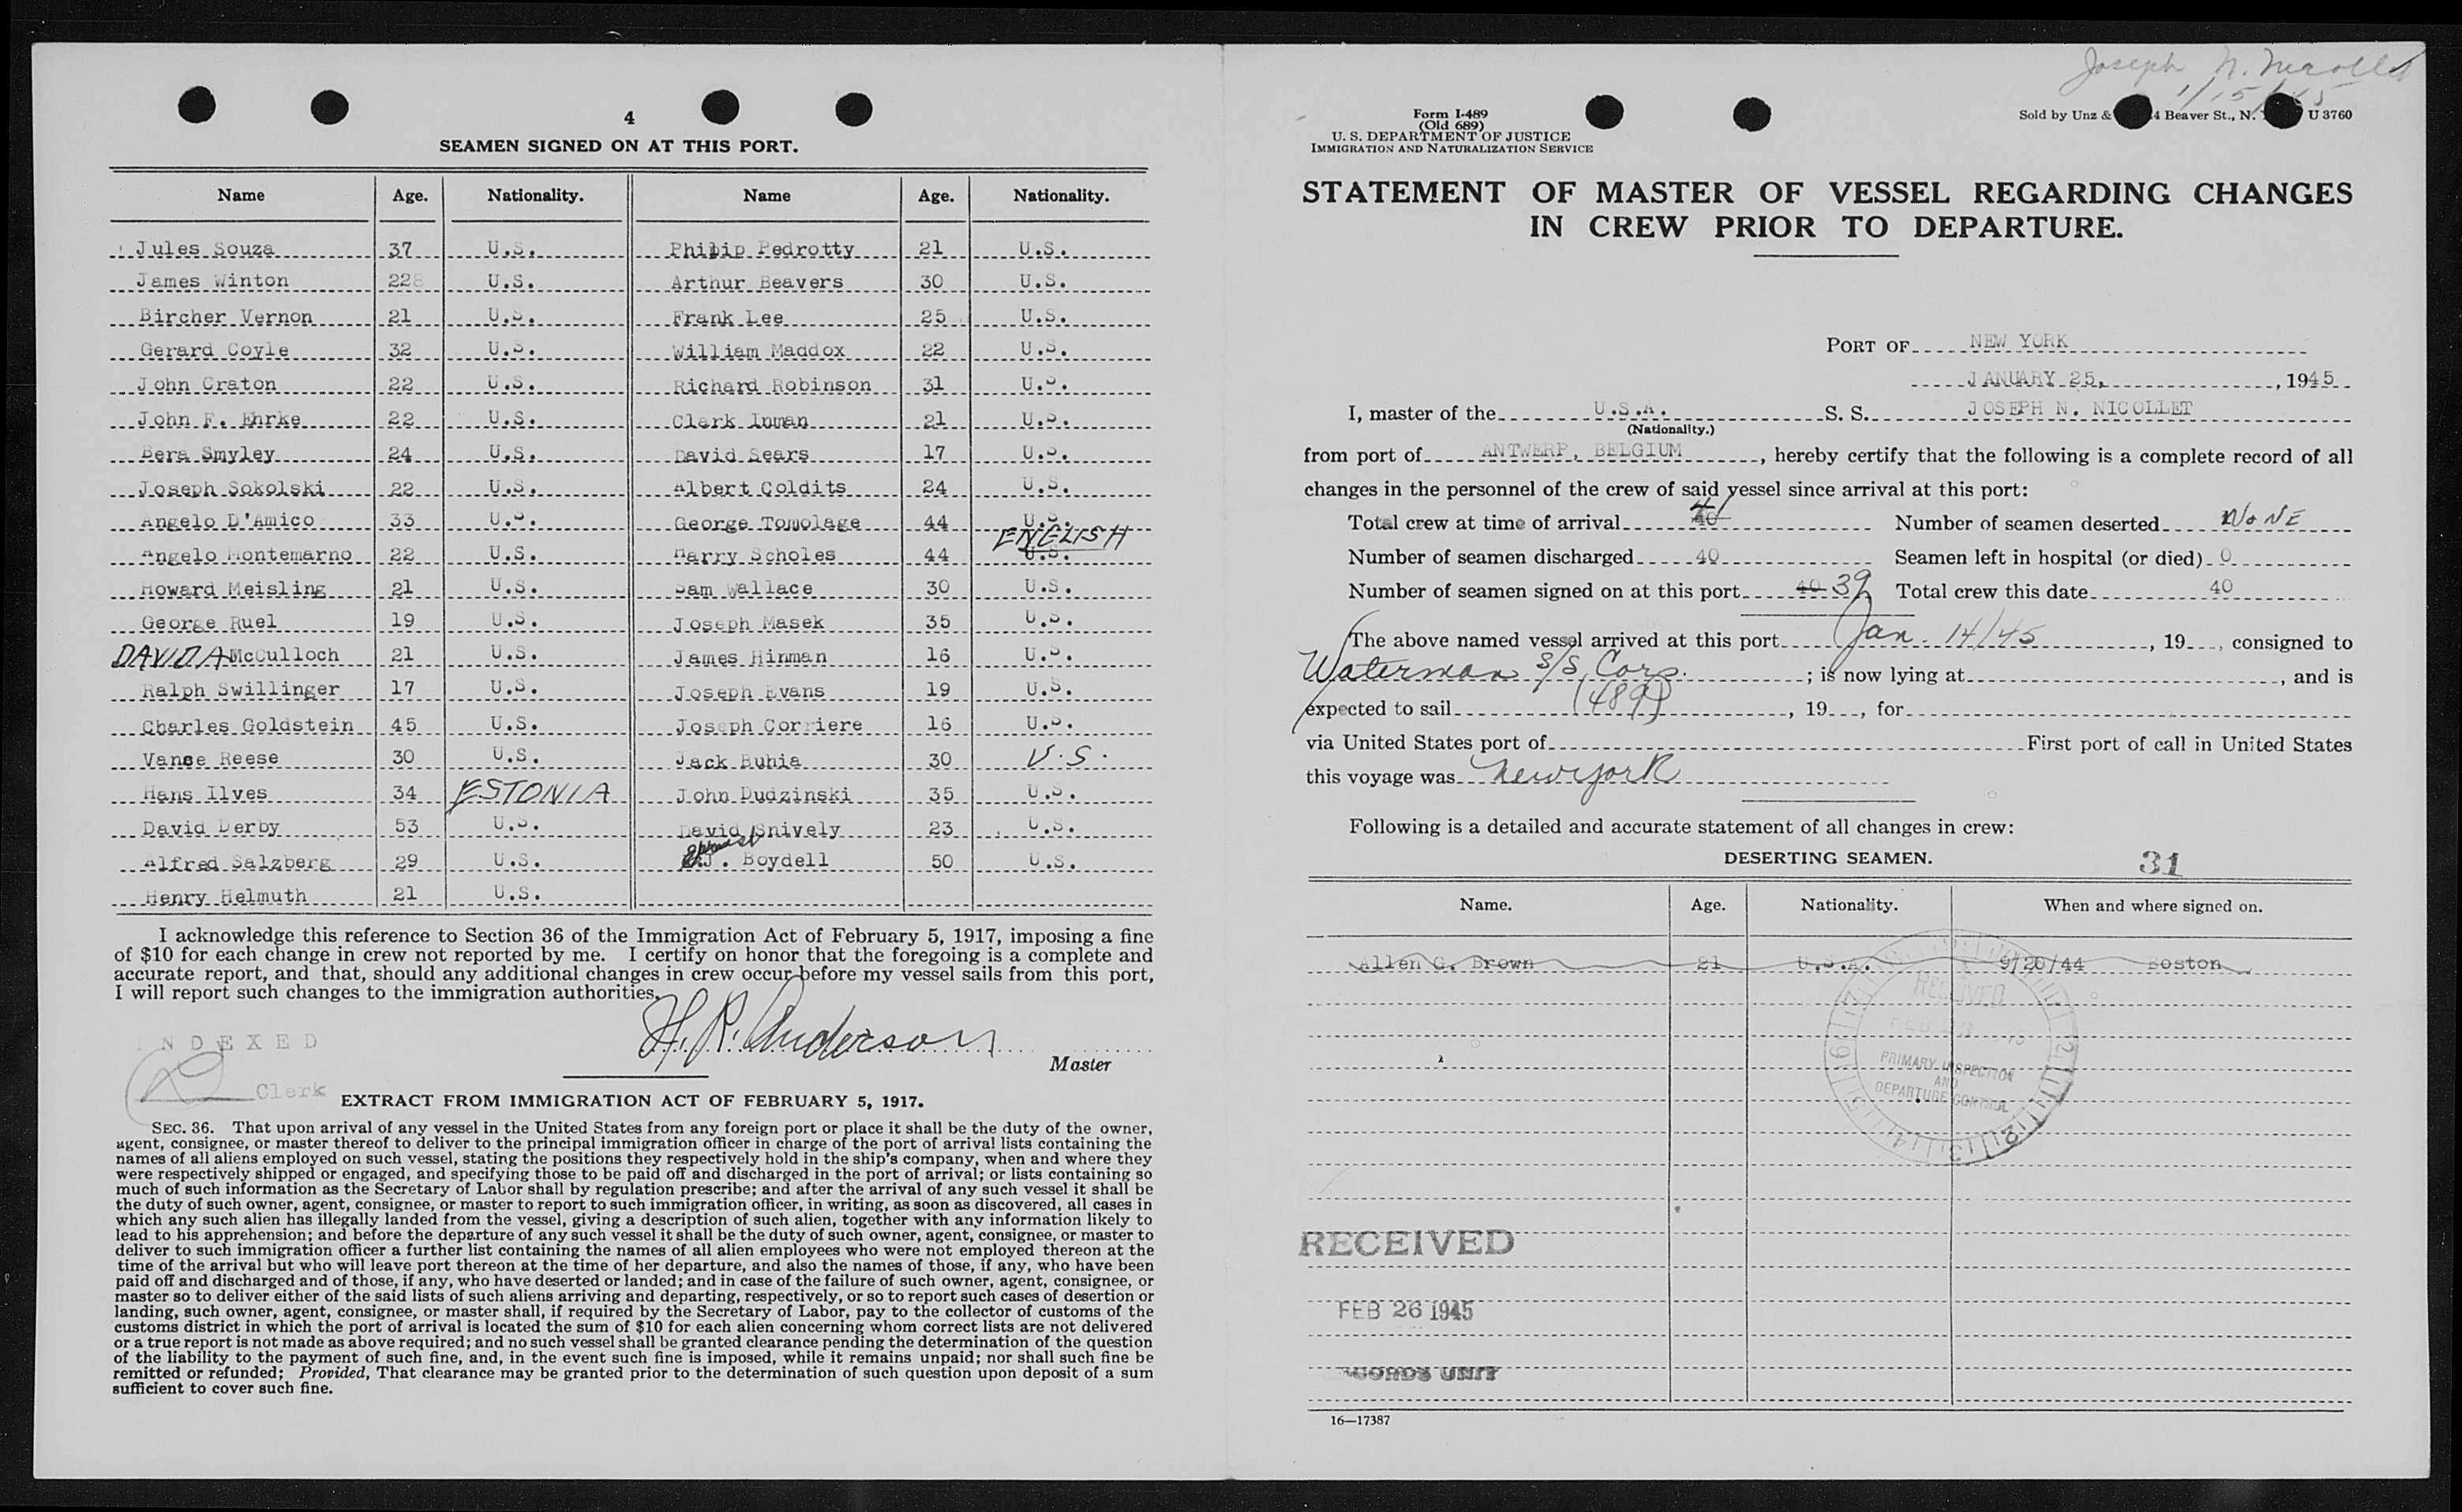 4
SEAMEN SIGNED ON AT THIS PORT.
Name Age. Nationality. Name Age. Nationality.
Jules Souza 37 U.S. Philip Pedrotty 21 U.S.
James Winton 22 U.S. Arthur Beavers 30 U.S.
Bircher Vernon 21 U.S. Frank Lee 25 U.S.
Gerard Coyle 32 U.S. William Maddox 22 U.S.
John Craton 22 U.S. Richard Robinson 31 U.S.
John F. Ehrke 22 U.S. Clark Inman 21 U.S.
Bera Smyley 24 U.S. David Sears 17 U.S.
Joseph Sokolski 22 U.S. Albert Coldits 24 U.S.
Angelo D'Amico 33 U.S. George Tomolage 44 U.S.
Angelo Montemarno 22 U.S. Harry Scholes 44 ENGLISH U.S.
Howard Meisling 21 U.S. Sam Wallace 30 U.S.
George Ruel 19 U.S. Joseph Masek 35 U.S.
DAVID A McCulloch 21 U.S. James Hinman 16 U.S.
Ralph Swillinger 17 U.S. Joseph Evans 19 U.S.
Charles Goldstein 45 U.S. Joseph Corriere 16 U.S.
Vance Reese 30 U.S. Jack Buhia 30 U.S.
Hans Ilves 34 ESTONIA John Dudzinski 35 U.S.
David Derby 53 U.S. David Snively 23 U.S.
Alfred Salzberg 29 U.S. J. Boydell 50 U.S.
Henry Helmuth 21 U.S.
I acknowledge this reference to Section 36 of the Immigration Act of February 5, 1917, imposing a fine
of $10 for each change in crew not reported by me. I certify on honor that the foregoing is a complete and
accurate report, and that, should any additional changes in crew occur before my vessel sails from this port,
I will report such changes to the immigration authorities.
H. R. Anderson
Master
INDEXED
Clerk
EXTRACT FROM IMMIGRATION ACT OF FEBRUARY 5, 1917.
SEC. 36. That upon arrival of any vessel in the United States from any foreign port or place it shall be the duty of the owner,
agent, consignee, or master thereof to deliver to the principal immigration officer in charge of the port of arrival lists containing the
names of all aliens employed on such vessel, stating the positions they respectively hold in the ship's company, when and where they
were respectively shipped or engaged, and specifying those to be paid off and discharged in the port of arrival; or lists containing so
much of such information as the Secretary of Labor shall by regulation prescribe; and after the arrival of any such vessel it shall be
the duty of such owner, agent, consignee, or master to report to such immigration officer, in writing, as soon as discovered, all cases in
which any such alien has illegally landed from the vessel, giving a description of such alien, together with any information likely to
lead to his apprehension; and before the departure of any such vessel it shall be the duty of such owner, agent, consignee, or master to
deliver to such immigration officer a further list containing the names of all alien employees who were not employed thereon at the
time of the arrival but who will leave port thereon at the time of her departure, and also the names of those, if any, who have been
paid off and discharged and of those, if any, who have deserted or landed; and in case of the failure of such owner, agent, consignee, or
master so to deliver either of the said lists of such aliens arriving and departing, respectively, or so to report such cases of desertion or
landing, such owner, agent, consignee, or master shall, if required by the Secretary of Labor, pay to the collector of customs of the
customs district in which the port of arrival is located the sum of $10 for each alien concerning whom correct lists are not delivered
or a true report is not made as above required; and no such vessel shall be granted clearance pending the determination of the question
of the liability to the payment of such fine, and, in the event such fine is imposed, while it remains unpaid; nor shall such fine be
remitted or refunded; Provided, That clearance may be granted prior to the determination of such question upon deposit of a sum
sufficient to cover such fine.
Joseph N. Nicollet
1/15/45
Form I-489
(Old 689)
U. S. DEPARTMENT OF JUSTICE
IMMIGRATION AND NATURALIZATION SERVICE
Sold by Unz & 4 Beaver St., N. U 3760
STATEMENT OF MASTER OF VESSEL REGARDING CHANGES
IN CREW PRIOR TO DEPARTURE.
PORT OF NEW YORK
JANUARY 25, , 1945
I, master of the U.S.A. S. S. JOSEPH N. NICOLLET
(Nationality.)
from port of ANTWERP, BELGIUM , hereby certify that the following is a complete record of all
changes in the personnel of the crew of said vessel since arrival at this port:
Total crew at time of arrival 40 41 Number of seamen deserted NONE
Number of seamen discharged 40 Seamen left in hospital (or died) 0
Number of seamen signed on at this port 40 39 Total crew this date 40
The above named vessel arrived at this port Jan. 14/45 , 19 , consigned to
Waterman S/S Corp. ; is now lying at , and is
expected to sail (489) , 19 , for
via United States port of First port of call in United States
this voyage was New York
Following is a detailed and accurate statement of all changes in crew:
DESERTING SEAMEN. 31
Name. Age. Nationality. When and where signed on.
Allen G. Brown 21 U.S.A. 9/20/44 Boston
RECEIVED
PRIMARY INSPECTION
AND
DEPARTURE CONTROL
RECEIVED
FEB 26 1945
RECORDS UNIT
16—17387